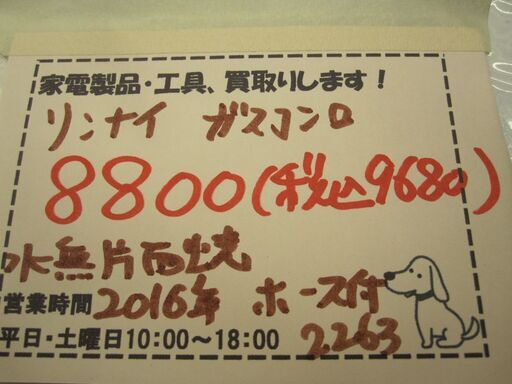 家電製品・工具、買取りします！
リンナイ ガスコンロ
8800(税込9680)
水無片面焼
営業時間 2016年 ホース付
平日・土曜日10:00～18:00 2263